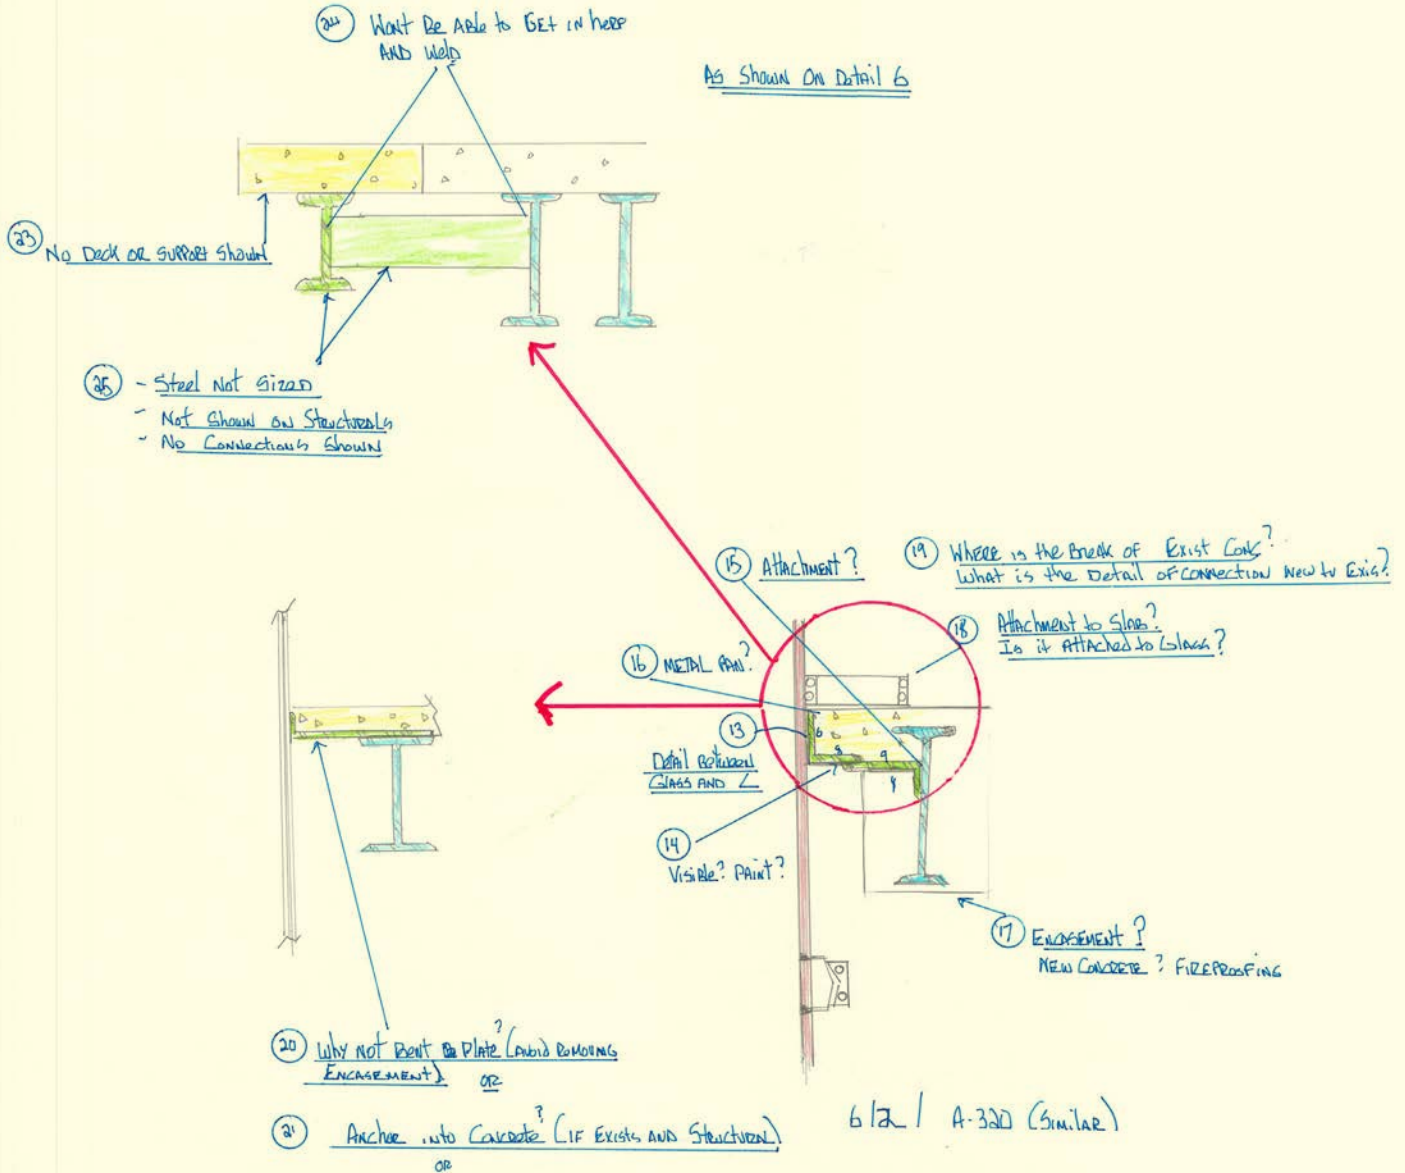 24 Wont Be Able to Get in here
AND Weld
As Shown On Detail 6
23 No Deck or Support Shown
25 - Steel Not Sized
- Not Shown on Structurals
- No Connections Shown
15 Attachment?
19 Where is the Break of Exist Conc?
What is the Detail of Connection New to Exis?
18 Attachment to Slab?
Is it Attached to Glass?
16 Metal Pan?
13
Detail Between
Glass and L
6
8
9
7
4
14
Visible? Paint?
17 Encasement?
New Concrete? Fireproofing
20 Why Not Bent Plate? (Avoid Removing
Encasement)
OR
21 Anchor into Concrete? (If Exists and Structural)
OR
6/2/ A-320 (Similar)